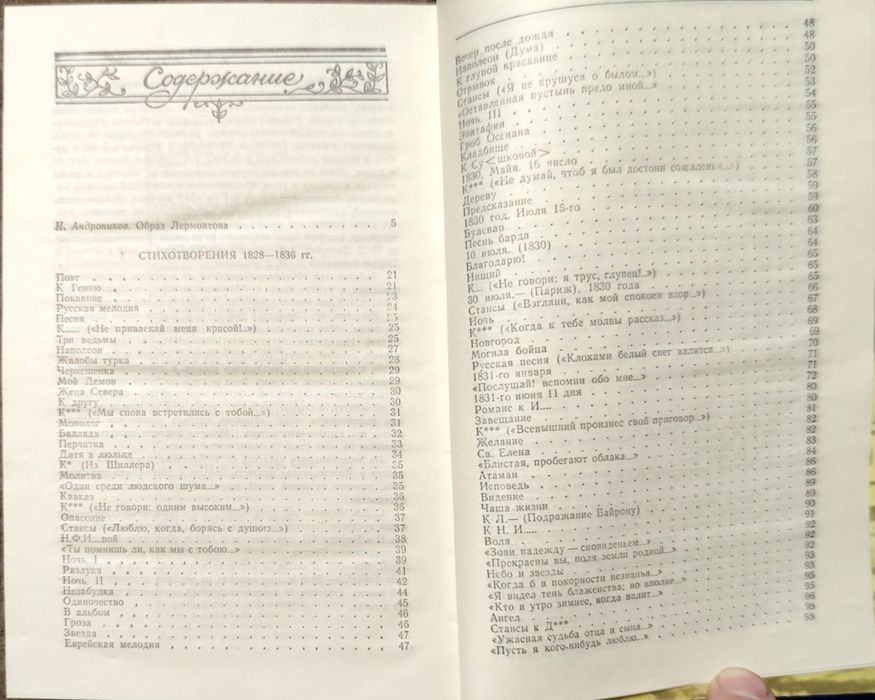 Содержание
И. Андроников. Образ Лермонтова . . . 5
СТИХОТВОРЕНИЯ 1828—1836 гг.
Поэт . . . 21
К Гению . . . 21
Покаяние . . . 23
Русская мелодия . . . 24
Песня . . . 25
К...... («Не привлекай меня красой!..») . . . 25
Три ведьмы . . . 25
Наполеон . . . 27
Жалобы турка . . . 28
Черкешенка . . . 29
Мой Демон . . . 29
Жена Севера . . . 30
К другу . . . 30
К*** («Мы снова встретились с тобой...») . . . 31
Монолог . . . 31
Баллада . . . 32
Перчатка . . . 33
Дитя в люльке . . . 34
К* (Из Шиллера) . . . 35
Молитва . . . 35
«Один среди людского шума...» . . . 35
Кавказ . . . 36
К*** («Не говори: одним высоким...») . . . 36
Опасение . . . 37
Стансы («Люблю, когда, борясь с душою...») . . . 37
Н.Ф.И....вой . . . 38
«Ты помнишь ли, как мы с тобою...» . . . 39
Ночь. I . . . 39
Разлука . . . 41
Ночь. II . . . 42
Незабудка . . . 44
Одиночество . . . 45
В альбом . . . 46
Гроза . . . 46
Звезда . . . 47
Еврейская мелодия . . . 47
Вечер после дождя . . . 48
Наполеон (Дума) . . . 48
К глупой красавице . . . 50
Отрывок . . . 50
Стансы («Я не крушуся о былом...») . . . 52
«Оставленная пустынь предо мной...» . . . 53
Ночь. III . . . 54
Эпитафия . . . 55
Гроб Оссиана . . . 55
Кладбище . . . 56
К Су<шковой> . . . 56
1830. Майя. 16 число . . . 57
К*** («Не думай, чтоб я был достоин сожаленья...») . . . 57
Дереву . . . 58
Предсказание . . . 59
1830 год. Июля 15-го . . . 59
Булевар . . . 60
Песнь барда . . . 63
10 июля. (1830) . . . 64
Благодарю! . . . 64
Нищий . . . 65
К... («Не говори: я трус, глупец!..») . . . 65
30 июля.— (Париж). 1830 года . . . 65
Стансы («Взгляни, как мой спокоен взор...») . . . 66
Ночь . . . 67
К*** («Когда к тебе молвы рассказ...») . . . 68
Новгород . . . 69
Могила бойца . . . 69
Русская песня («Клоками белый снег валится...») . . . 70
1831-го января . . . 71
«Послушай! вспомни обо мне...» . . . 71
1831-го июня 11 дня . . . 72
Романс к И.... . . . 80
Завещание . . . 80
К*** («Всевышний произнес свой приговор...») . . . 81
Желание . . . 82
Св. Елена . . . 82
«Блистая, пробегают облака...» . . . 83
Атаман . . . 84
Исповедь . . . 86
Видение . . . 86
Чаша жизни . . . 89
К Л.— (Подражание Байрону) . . . 89
К Н. И..... . . . 90
Воля . . . 91
«Зови надежду — сновиденьем...» . . . 92
«Прекрасны вы, поля земли родной...» . . . 92
Небо и звезды . . . 92
«Когда б в покорности незнанья...» . . . 93
«Я видел тень блаженства; но вполне...» . . . 93
«Кто в утро зимнее, когда валит...» . . . 95
Ангел . . . 95
Стансы к Д*** . . . 96
«Ужасная судьба отца и сына...» . . . 98
«Пусть я кого-нибудь люблю...» . . . 98